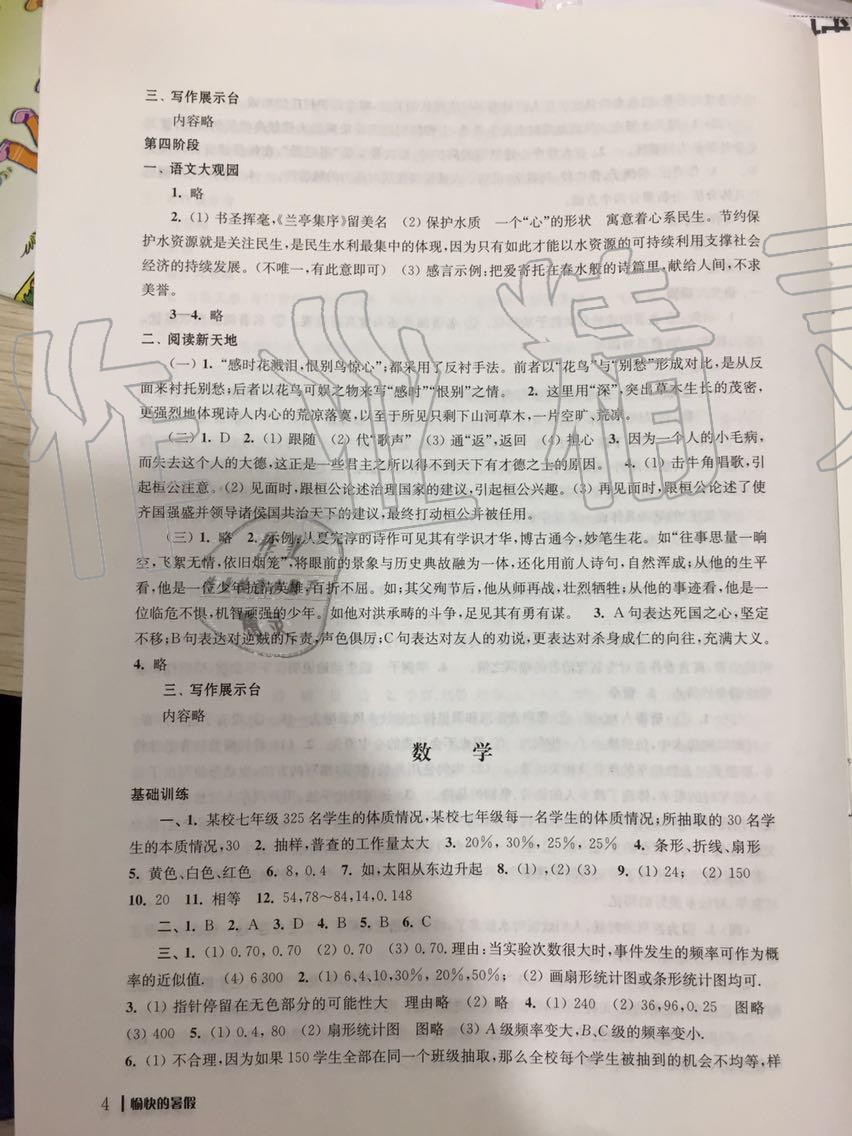 三、写作展示台
内容略
第四阶段
一、语文大观园
1. 略
2. (1) 书圣挥毫,《兰亭集序》留美名 (2) 保护水质 一个“心”的形状 寓意着心系民生。节约保
护水资源就是关注民生,是民生水利最集中的体现,因为只有如此才能以水资源的可持续利用支撑社会
经济的持续发展。(不唯一,有此意即可) (3) 感言示例:把爱寄托在春水般的诗篇里,献给人间,不求
美誉。
3—4. 略
二、阅读新天地
(一) 1. “感时花溅泪,恨别鸟惊心”;都采用了反衬手法。前者以“花鸟”与“别愁”形成对比,是从反
面来衬托别愁;后者以花鸟可娱之物来写“感时”“恨别”之情。 2. 这里用“深”,突出草木生长的茂密,
更强烈地体现诗人内心的荒凉落寞,以至于所见只剩下山河草木,一片空旷、荒凉。
(二) 1. D 2. (1) 跟随 (2) 代“歌声” (3) 通“返”,返回 (4) 担心 3. 因为一个人的小毛病,
而失去这个人的大德,这正是一些君主之所以得不到天下有才德之士的原因。 4. (1) 击牛角唱歌,引
起桓公注意。(2) 见面时,跟桓公论述治理国家的建议,引起桓公兴趣。(3) 再见面时,跟桓公论述了使
齐国强盛并领导诸侯国共治天下的建议,最终打动桓公并被任用。
(三) 1. 略 2. 示例:从夏完淳的诗作可见其有学识才华,博古通今,妙笔生花。如“往事思量一晌
空,飞絮无情,依旧烟笼”,将眼前的景象与历史典故融为一体,还化用前人诗句,自然浑成;从他的生平
看,他是一位少年抗清英雄,百折不屈。如:其父殉节后,他从师再战,壮烈牺牲;从他的事迹看,他是一
位临危不惧,机智顽强的少年。如他对洪承畴的斗争,足见其有勇有谋。 3. A句表达死国之心,坚定
不移;B句表达对逆贼的斥责,声色俱厉;C句表达对友人的劝说,更表达对杀身成仁的向往,充满大义。
4. 略
三、写作展示台
内容略
数 学
基础训练
一、1. 某校七年级 325 名学生的体质情况,某校七年级每一名学生的体质情况;所抽取的 30 名学
生的本质情况,30 2. 抽样,普查的工作量太大 3. 20%,30%,25%,25% 4. 条形、折线、扇形
5. 黄色、白色、红色 6. 8,0.4 7. 如,太阳从东边升起 8. (1),(2) (3) 9. (1) 24; (2) 150
10. 20 11. 相等 12. 54,78~84,14,0.148
二、1. B 2. A 3. D 4. B 5. B 6. C
三、1. (1) 0.70, 0.70 (2) 0.70 (3) 0.70. 理由:当实验次数很大时,事件发生的频率可作为概
率的近似值. (4) 6 300 2. (1) 6、4、10,30%,20%,50%; (2) 画扇形统计图或条形统计图均可.
3. (1) 指针停留在无色部分的可能性大 理由略 (2) 略 4. (1) 240 (2) 36,96,0.25 图略
(3) 400 5. (1) 0.4,80 (2) 扇形统计图 图略 (3) A级频率变大,B、C级的频率变小.
6. (1) 不合理,因为如果 150 学生全部在同一个班级抽取,那么全校每个学生被抽到的机会不均等,样
4 愉快的暑假